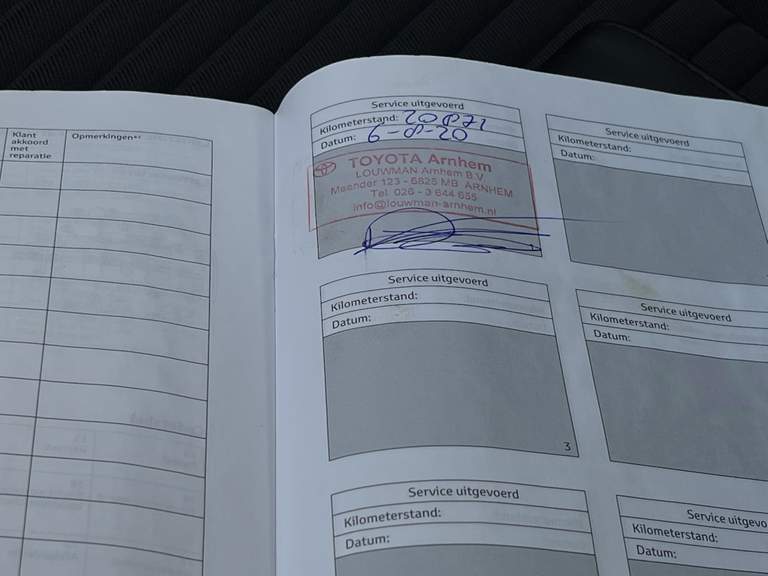 Klant
akkoord
met
reparatie
Opmerkingen*¹
Service uitgevoerd
Kilometerstand: 20871
Datum: 6-8-20
TOYOTA Arnhem
LOUWMAN Arnhem B.V.
Meander 123 - 6825 MB ARNHEM
Tel. 026 - 3 644 655
info@louwman-arnhem.nl
Service uitgevoerd
Kilometerstand:
Datum:
Service uitgevoerd
Kilometerstand:
Datum:
3
Service uitgevoerd
Kilometerstand:
Datum:
Service uitgevoerd
Kilometerstand:
Datum:
Service uitgevo
Kilometerstand:
Datum: